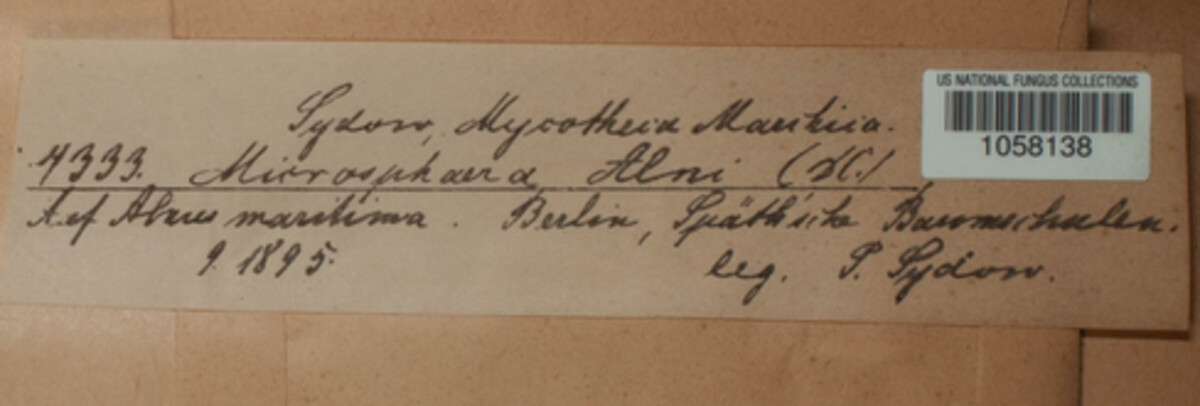 Sydow, Mycotheca Marchica.
4333. Microsphaera Alni (DC.)
Auf Alnus maritima. Berlin, Späth'sche Baumschulen.
9. 1895.
leg. P. Sydow.
US NATIONAL FUNGUS COLLECTIONS
1058138